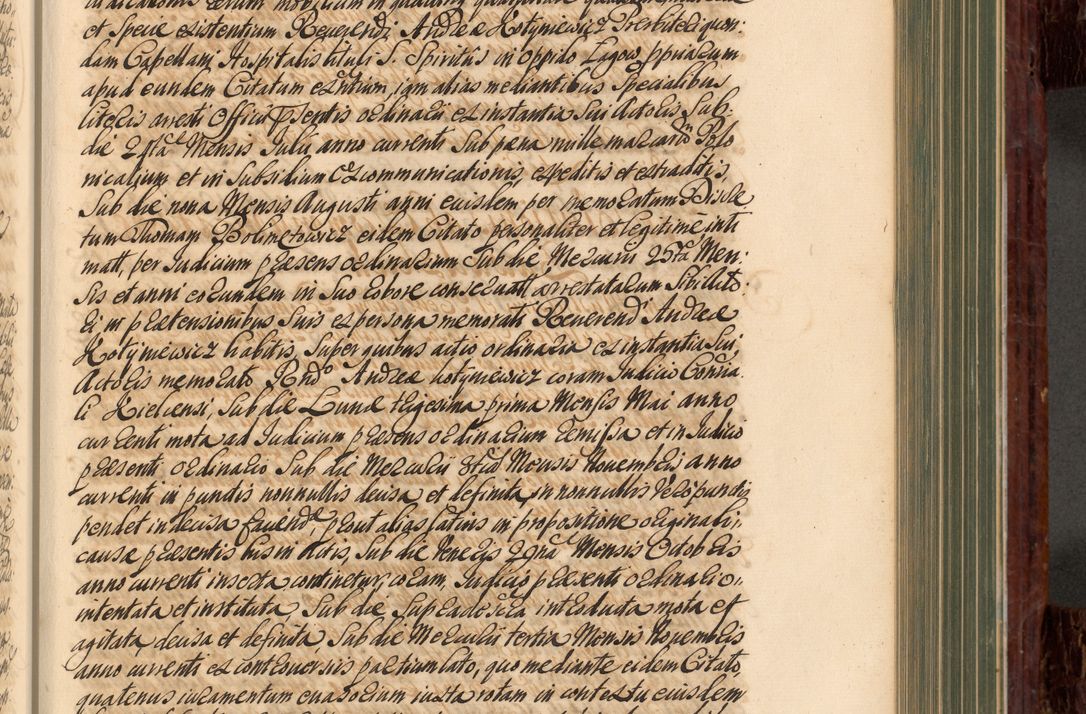 et Specie existentium Reverendi Andreæ Kotyniewicz Præsbiteri quon:
dam Capellani Hospitalis tituli S. Spiritus in Oppido Lagow
apud eundem Citatum existentium, iam alias mediantibus Specialibus
literis arresti Officii Præsentis ordinarii ex instantia Sui Actoris Sub
die 24ta Mensis Julii anno currenti Sub pæna mille marcarum Polo
nicalium et in Subsidium Excommunicationis, expeditis et extraditis,
Sub die nona Mensis Augusti anni eiusdem per memoratum Discre
tum Thomam Bolimetowicz eidem Citato personaliter et legitime inti
matt, per Judicium præsens ordinarium Sub die Mercurii 25ta Men:
sis et anni eorundem in Suo robore conservatt arrestatarum Sibi Acto:
ri in prætensionibus Suis ex persona memorati Reverendi Andreæ
Kotyniewicz habitis, Super quibus actio ordinaria ex instantia Sui
Actoris memorato Rndo Andreæ Kotyniewicz coram Judicio Consia
li Kielcensi, Sub die Lunæ trigesima prima Mensis Mai anno
currenti mota ad Judicium præsens ordinarium remissa et in Judicio
præsenti ordinario Sub die Mercurii Mensis Novembris anno
currenti in punctis nonnullis decisa et definita, in nonnullis vero punctis
pendet indecisa prout alias latius in propositione originali
causæ præsentis his in Actis, Sub die Veneris Mensis Octobris
anno currenti inserta continetur, coram Judicio præsenti ordinario
intentata et instituta Sub die Supradescta introducta mota et
agitata decisa et definita Sub die Mercurii tertia Mensis Novembris
anno currenti ex controversiis partium lato, quo mediante eidem Citato,
quatenus iuramentum iuxta rotam in contextu eiusdem